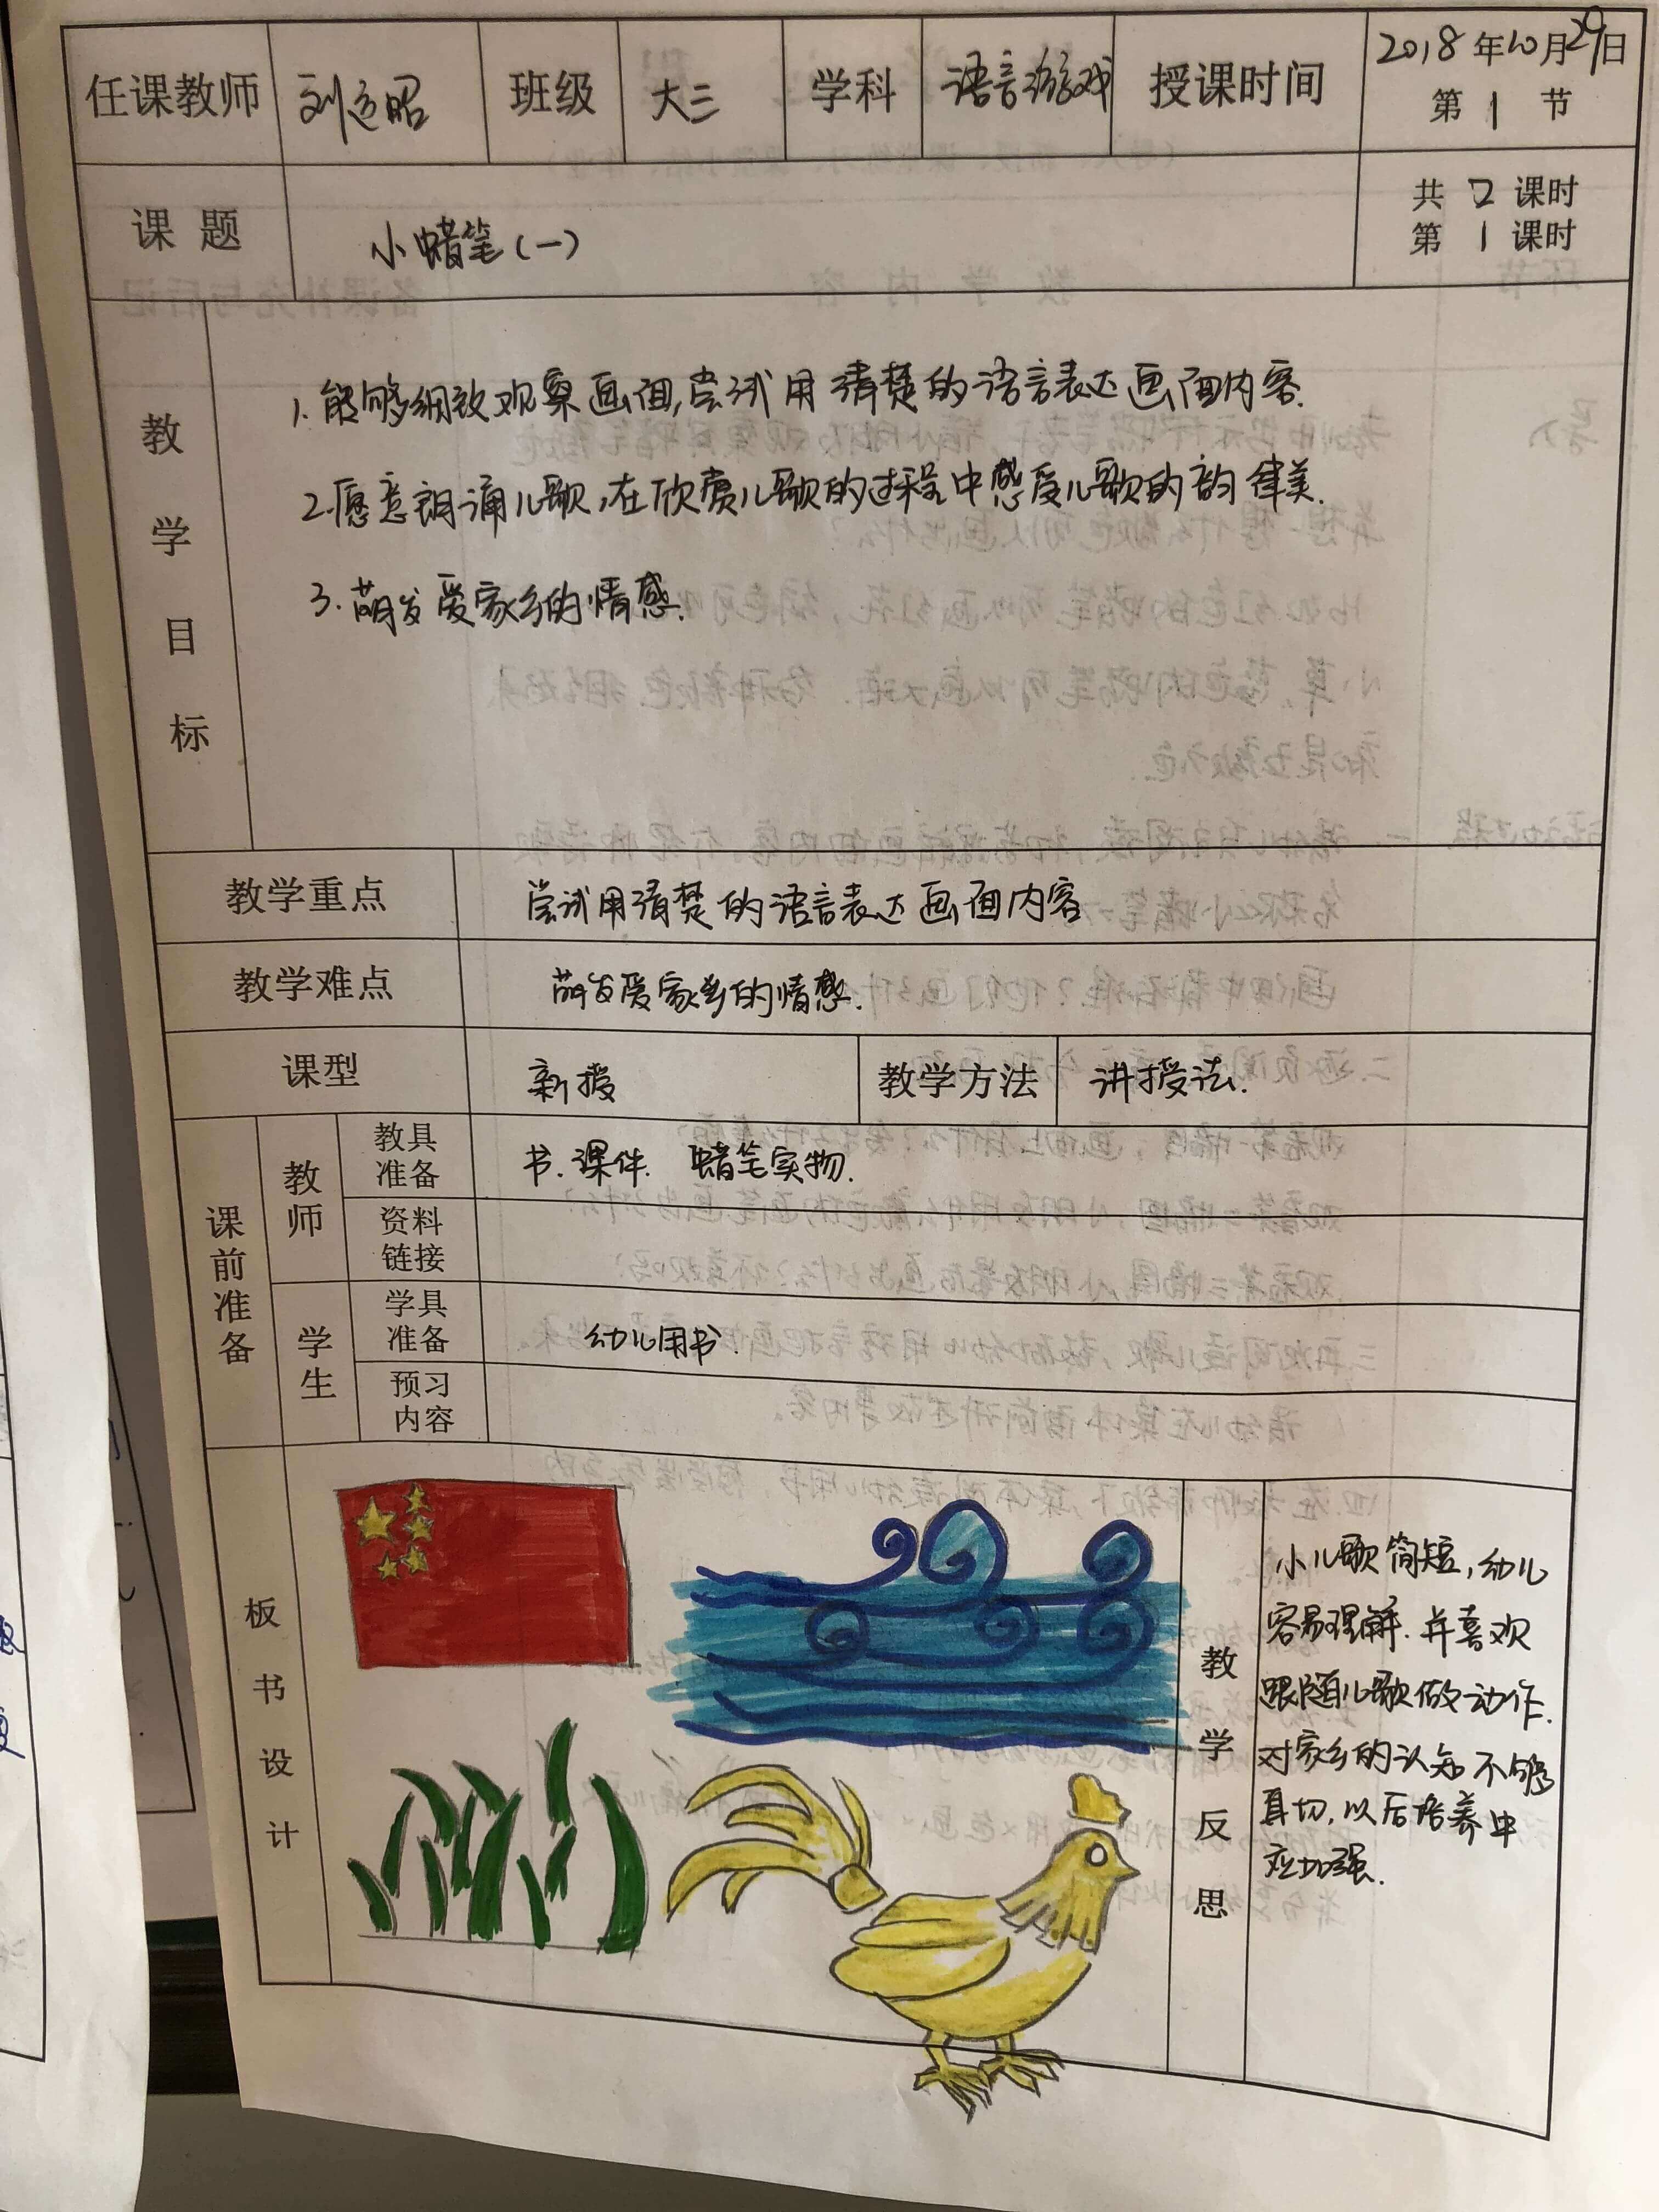 任课教师 刘运昭 班级 大三 学科 语言游戏 授课时间 2018年10月29日
第 1 节
课 题 小蜡笔(一) 共 2 课时
第 1 课时
教学目标
1. 能够细致观察画面,尝试用清楚的语言表达画面内容.
2.愿意朗诵儿歌,在欣赏儿歌的过程中感受儿歌的韵律美.
3. 萌发爱家乡的情感.
教学重点 尝试用清楚的语言表达画面内容
教学难点 萌发爱家乡的情感.
课型 新授 教学方法 讲授法.
课前准备
教师
教具准备 书. 课件. 蜡笔实物.
资料链接
学生
学具准备 幼儿用书.
预习内容
板书设计
教学反思
小儿歌简短,幼儿
容易理解.并喜欢
跟随儿歌做动作.
对家乡的认知不够
真切,以后培养中
应加强.